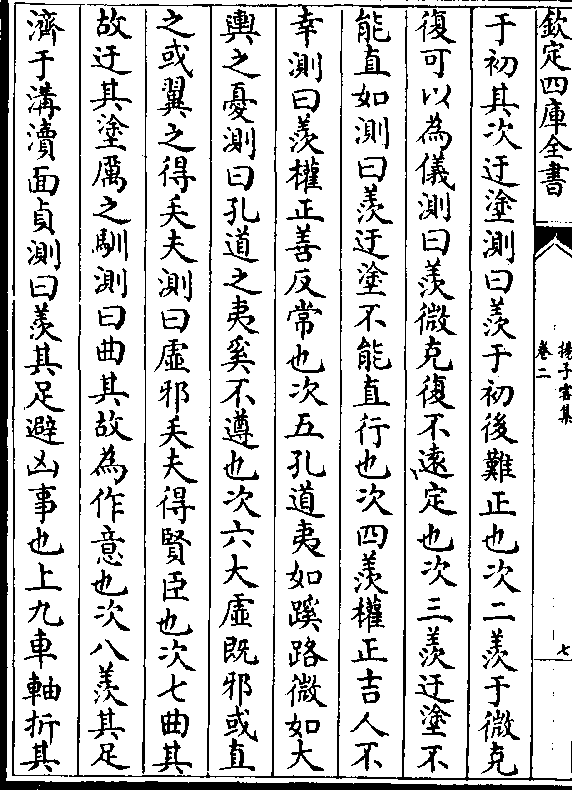 欽定四庫全書
揚子雲集
卷二
七
于初其次迂塗測曰羨于初後難正也次二羨于微克
復可以為儀測曰羨微克復不遠定也次三羨迂塗不
能直如測曰羨迂塗不能直行也次四羨權正吉人不
幸測曰羨權正善反常也次五孔道夷如蹊路微如大
輿之憂測曰孔道之夷奚不遵也次六大虛既邪或直
之或翼之得矢夫測曰虛邪矢夫得賢臣也次七曲其
故迂其塗厲之馴測曰曲其故為作意也次八羨其足
濟于溝瀆面貞測曰羨其足避凶事也上九車軸折其